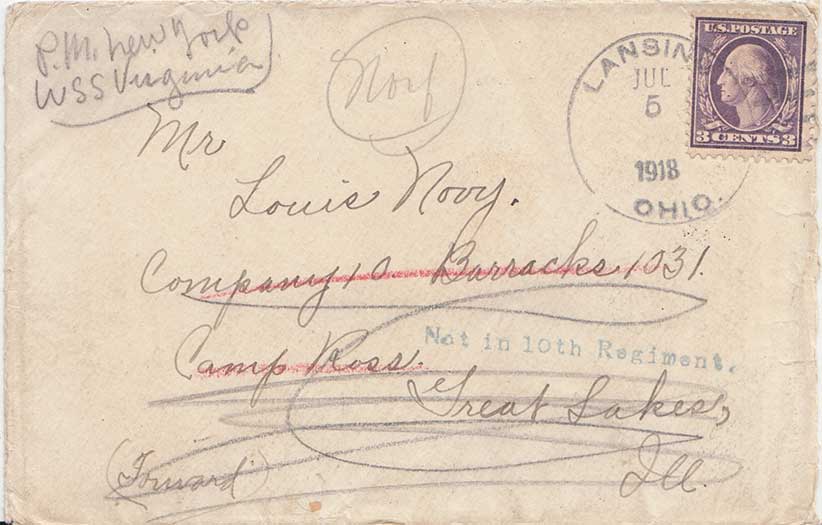 P.M. New York
USS Virginia
Norf
LANSING
JUL
5
1918
OHIO.
U.S. POSTAGE
3 CENTS 3
Mr
Louis Novy.
Company 10. Barracks 1031.
Not in 10th Regiment.
Camp Ross.
Great Lakes,
(Forward)
Ill.